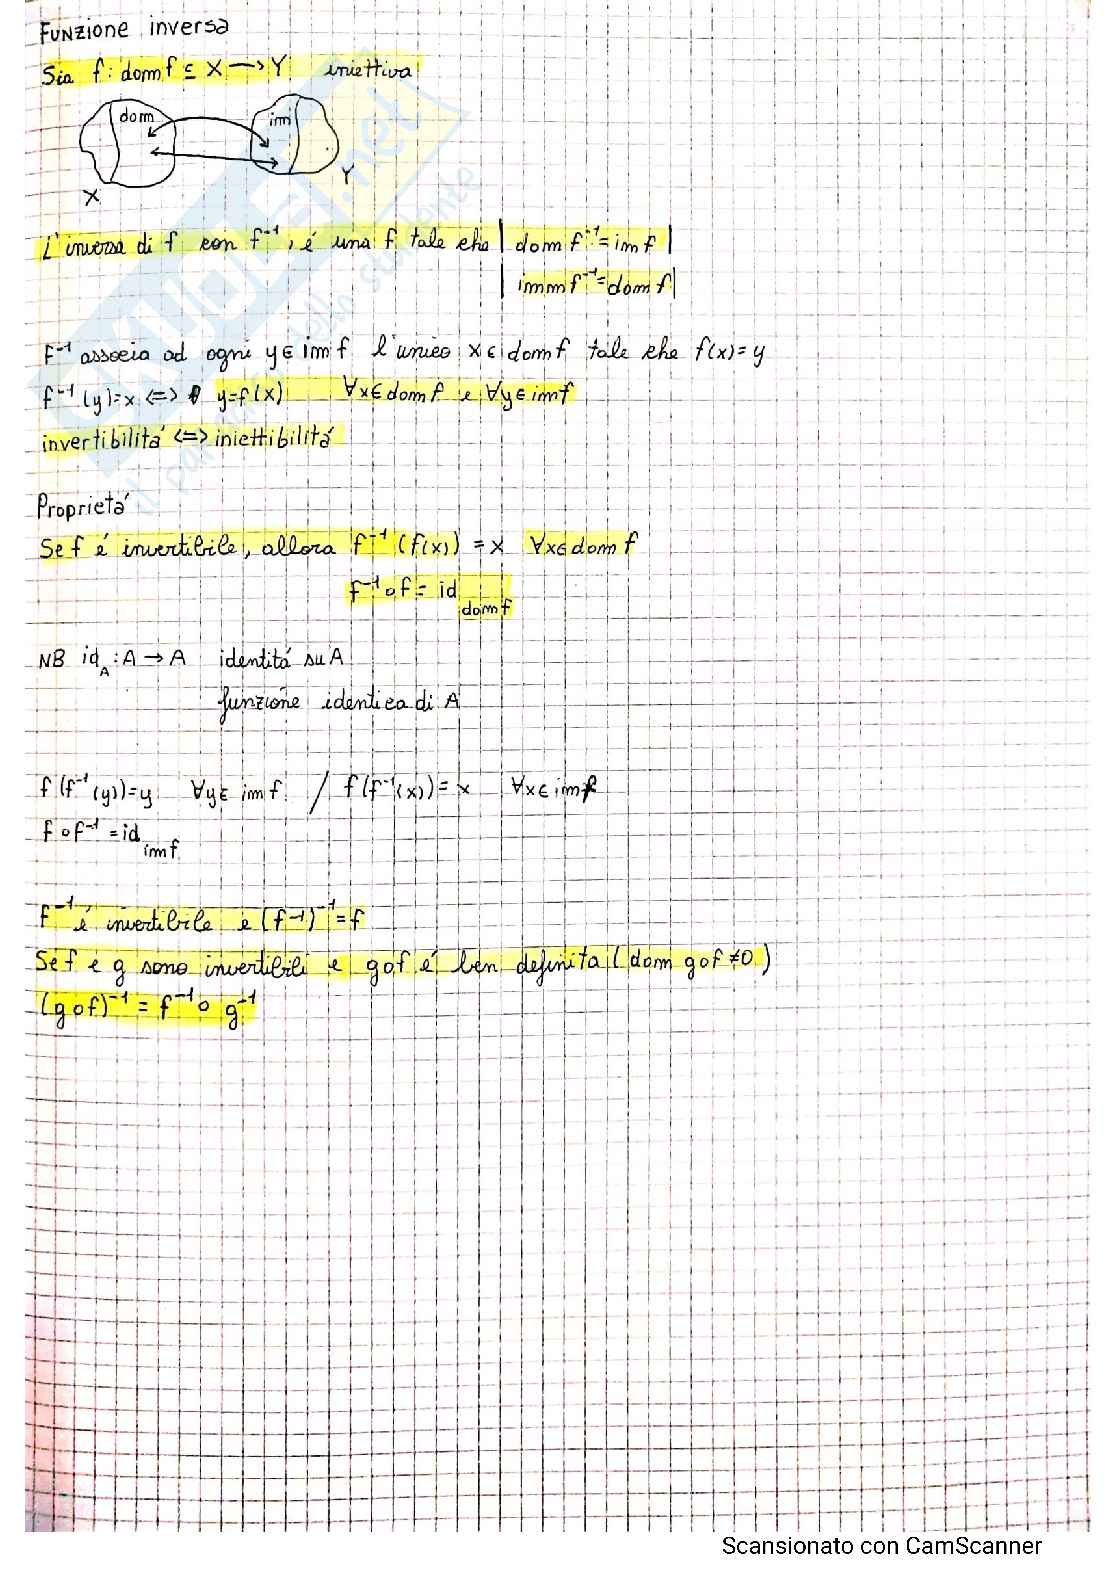 Funzione inversa
Sia f: dom f ⊆ X → Y iniettiva
dom
im
X
Y
L'inversa di f con f⁻¹, é una f tale che | dom f⁻¹ = im f |
| imm f⁻¹ = dom f |
F⁻¹ associa ad ogni y ∈ im f l'unico x ∈ dom f tale che f(x) = y
f⁻¹(y) = x <=> y = f(x) ∀x ∈ dom f e ∀y ∈ im f
invertibilitá <=> iniettibilitá
Proprietá
Se f é invertibile, allora f⁻¹(f(x)) = x ∀x ∈ dom f
f⁻¹ o f = id dom f
NB id_A : A → A identitá su A
funzione identica di A
f(f⁻¹(y)) = y ∀y ∈ im f / f(f⁻¹(x)) = x ∀x ∈ im f
f o f⁻¹ = id im f
F⁻¹ é invertibile e (f⁻¹)⁻¹ = f
Se f e g sono invertibili e g o f é ben definita (dom g o f ≠ 0)
(g o f)⁻¹ = f⁻¹ o g⁻¹
SKUOLA.net
il paradiso dello studente
Scansionato con CamScanner